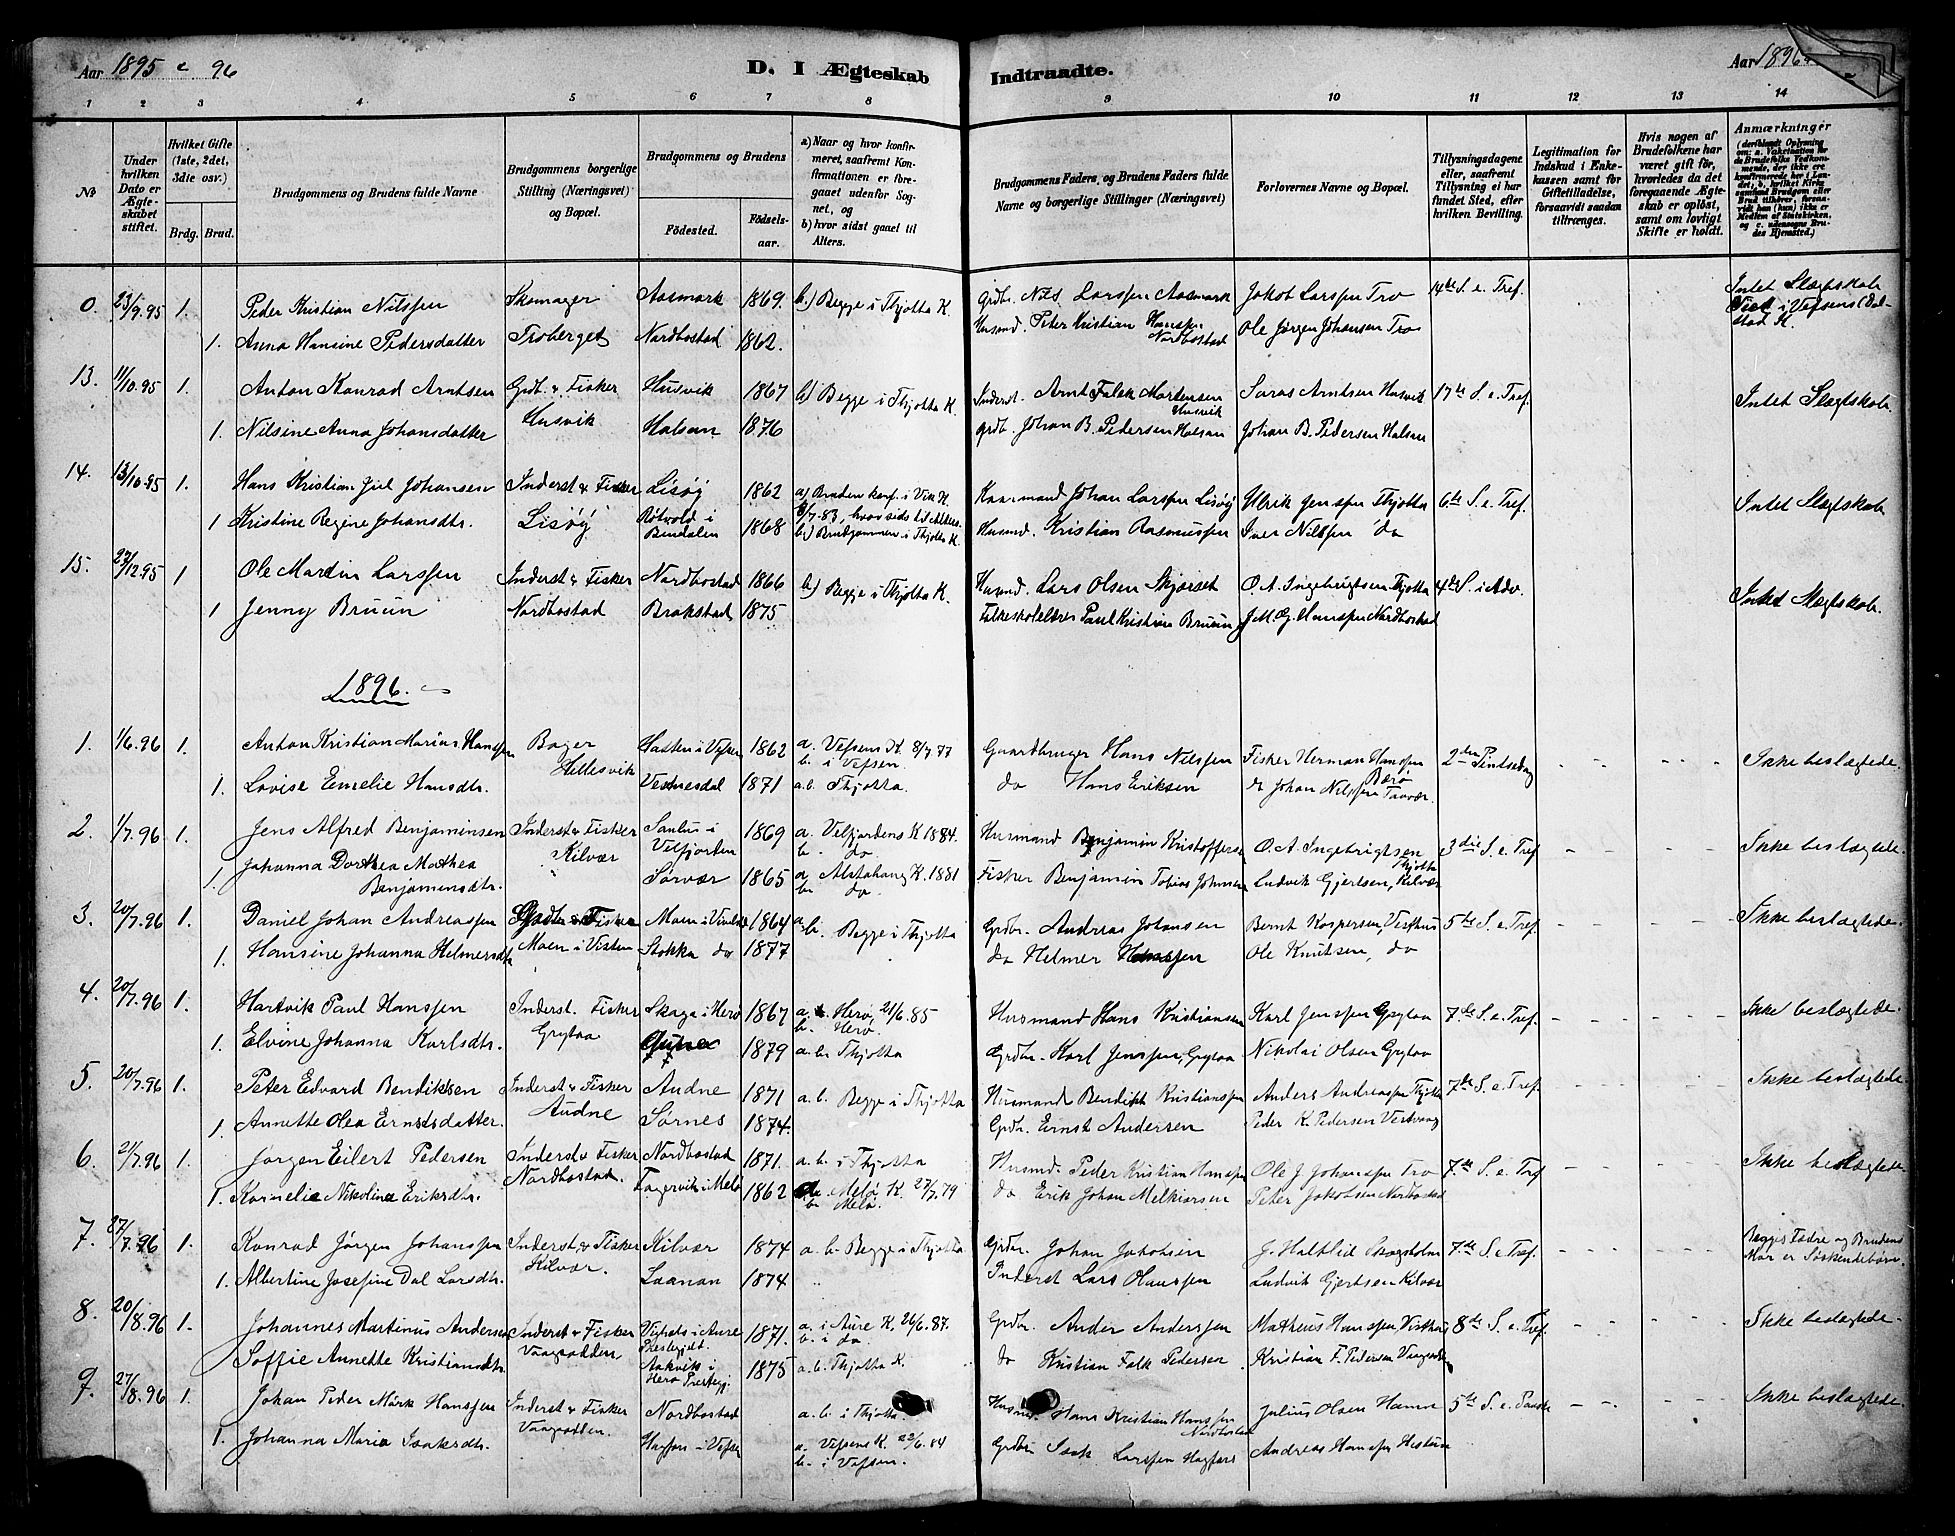 Aar 1895 e 96
D. I Ægteskab Indtraadte.
Aar 1896
1 2 3 4 5 6 7 8 9 10 11 12 13 14
No
Under hvilken Dato er Ægteskabet stiftet.
Hvilket Gifte (1ste, 2det, 3die osv.)
Brdg. Brud.
Brudgommens og Brudens fulde Navne
Brudgommens borgerlige Stilling (Næringsvei) og Bopæl.
Brudgommens og Brudens
Fødested. Fødselsaar.
a) Naar og hvor konfirmeret, saafremt Konfirmationen er foregaaet udenfor Sognet, og
b) hvor sidst gaaet til Alters.
Brudgommens Faders, og Brudens Faders fulde Navne og borgerlige Stillinger (Næringsvei)
Forlovernes Navne og Bopæl.
Tillysningsdagene eller, saafremt Tillysning ei har fundet Sted, efter hvilken Bevilling.
Legitimation for Indskud i Enkekassen samt for Giftetilladelse, forsaavidt saadan tiltrænges.
Hvis nogen af Brudefolkene har været gift før, hvorledes da det foregaaende Ægteskab er opløst, samt om lovligt Skifte er holdt.
Anmærkninger
0 23/9.95 1. Peder Kristian Nilssen Skomager Aasmark 1869. b.) Begge i Thjøtta K. Grdbr. Nils Larssen Aasmark Jakob Larssen Tro 14de S. e. Tref. Intet Slægtskab
1. Anna Hansine Pedersdatter Troberget Nordbostad 1862. Husmd. Peter Kristian Hanssen Nordbostad Ole Jørgen Johansen Tro
13. 11/10.95 1. Anton Konrad Arntsen Grdb. & Fisker Husvik 1867 b) Begge i Thjøtta K. Inderst. Arnt Falck Mortensen Husvik Arntsen Husvik 17de S. e. Tref. Intet Slægtskab.
1. Nilsine Anna Johansdatter Husvik Halsan 1876 Grdb. Johan B. Pedersen Halsan Johan B. Pedersen Halsan
14. 13/10.95 1. Hans Kristian Juel Johansen Inderst & Fisker Lisøy 1862 a) Bruden konf. i Vik K. Johan Larssen Lisøy Ulrik Jenssen Thjøtta 6te S. e. Tref. Intet Slægtskab
1 Kristine Regine Johansdtr. Lisøy Bindalen 1868 b.) Brudgommen i Thjøtta K. Husmd. Kristian Rasmussen Iver Nilssen do
15. 27/12.95 1 Ole Martin Larssen Inderst & Fisker Nordbostad 1866 b.) Begge i Thjøtta K. Husmd. Lars Olsen O. A. Ingebrigtsen Thjøtta 4de S. i Adv. Intet Slægtskab.
1 Jenny Bruun Nordbostad Brakstad 1875 Paul Kristian Bruun J. M. G. Hanssen Nordbostad
1896.
1. 1/6.96 1. Anton Kristian Marius Hanssen Bager 1862 a. Vefsens K. 8/7.77 b. i Vefsen. Gaardbruger Hans Nilssen Fisker Herman Hanssen Bærø 2den Pintsedag - - - Ikke beslægtede.
1. Lovise Emelie Hansdtr. Hellesvik 1871 a.b. Thjøtta. do Hans Eriksen Johan Nilssen
2. 1/7.96 1. Jens Alfred Benjaminsen Inderst & Fisker Velfjorden 1869 a. Velfjordens K 1884. b. do. Husmand Benjamin Kristoffersen O. A. Ingebrigtsen Thjøtta 3die S. e. Tref - - - Ikke beslægtede.
1. Johanna Dorthea Mathea Benjaminsdtr. Kilvær Sørvær 1865 a. Alstahaug K. 1881 b. do. Fisker Benjamin Tobias Johnsen Ludvik Gjertsen, Kilvær
3. 20/7.96 1. Daniel Johan Andreassen Fisker 1864 a.b. Begge i Thjøtta Grdbr. Andreas Johansen Bernt Kaspersen, Visthus 5te S. e. Tref - - - Ikke beslægtede.
1. Hansine Johanna Helmersdtr Moen i Visten Stokka do 1877 do Helmer Hanssen Ole Knutsen, do
4. 20/7.96 1. Hartvik Paul Hanssen Inderst. Fisker Skaga i Herø 1867 a. Herø, 21/6.85 b. Herø. Husmand Hans Kristiansen Karl Jenssen Grytaa 7de S. e. Tref. - - - Ikke beslægtede.
1. Elvine Johanna Karlsdtr. Grytaa 1879 a.b. Thjøtta Grdbr. Karl Jenssen, Grytaa Nikolai Olsen Grytaa
5. 20/7.96 1. Peter Edvard Bendiksen Inderst & Fisker Audne 1871 a. b. Begge i Thjøtta Husmand Bendikt Kristianssen Anders Andreassen Thjøtta 7de S. e. Tref. - - - Ikke beslægtede.
1. Annette Olea Ernstsdatter. Audne Sørnes 1874. Grdbr. Ernst Andersen Peder K. Pedersen
6. 21/7.96 1. Jørgen Eilert Pedersen Inderst & Fisker Nordbostad 1871. a.b. i Thjøtta Husmd. Peder Kristian Hanssen Ole J. Johanssen Tro 7de S. e. Tref - - - Ikke beslægtede
1. Kornelie Nikoline Eriksdtr. Nordbostad. Fagervik i Melø 1862 a. Melø K. 27/7.79 b. Melø. do Erik Johan Melkiorsen Peter Jakobsen Nordbostad
7. 27/7.96 1. Konrad Jørgen Johanssen Inderst & Fisker Kilvær 1874 a. b. Begge i Thjøtta. Grdbr. Johan Jakobsen J. Haltlid Skogsholm 7de S. e. Tref. - - - Begges Fædre og Brudens Mor er Søskendebørn.
1. Albertine Josefine Dal Larsdtr. Kilvær. Laanan 1874 Inderst Lars Olaussen Ludvik Gjertsen Kilvær
8. 20/8.96 1. Johannes Martinus Andersen Inderst & Fisker 1871. a. i Aure K. 26/6.87. b. i do. Grdbr. Ander Anderssen Matheus Hanssen, Visthus 8de S. e. Tref. - - - Ikke beslægtede.
Soffie Annette Kristiansdtr. Vaagsodden Aakvik i Herø Prestegj. 1875 a.b. Thjøtta K. do Kristian Falk Pedersen Kristian F. Pedersen Vaagsodden
9. 27/8.96 1. Johan Peder Mørk Hanssen Inderst & Fisker Nordbostad a.b. i Thjøtta. Husmd. Hans Kristian Hanssen Nordbostad Julius Olsen Hamn 5te S. e. Paaske - - - Ikke beslægtede.
1. Johanna Maria Isaksdtr. Vaagsodden. a. Vefsens K. 22/6.84 b. i Vefsen. Grdbr Isak Larssen Andreas Hanssen